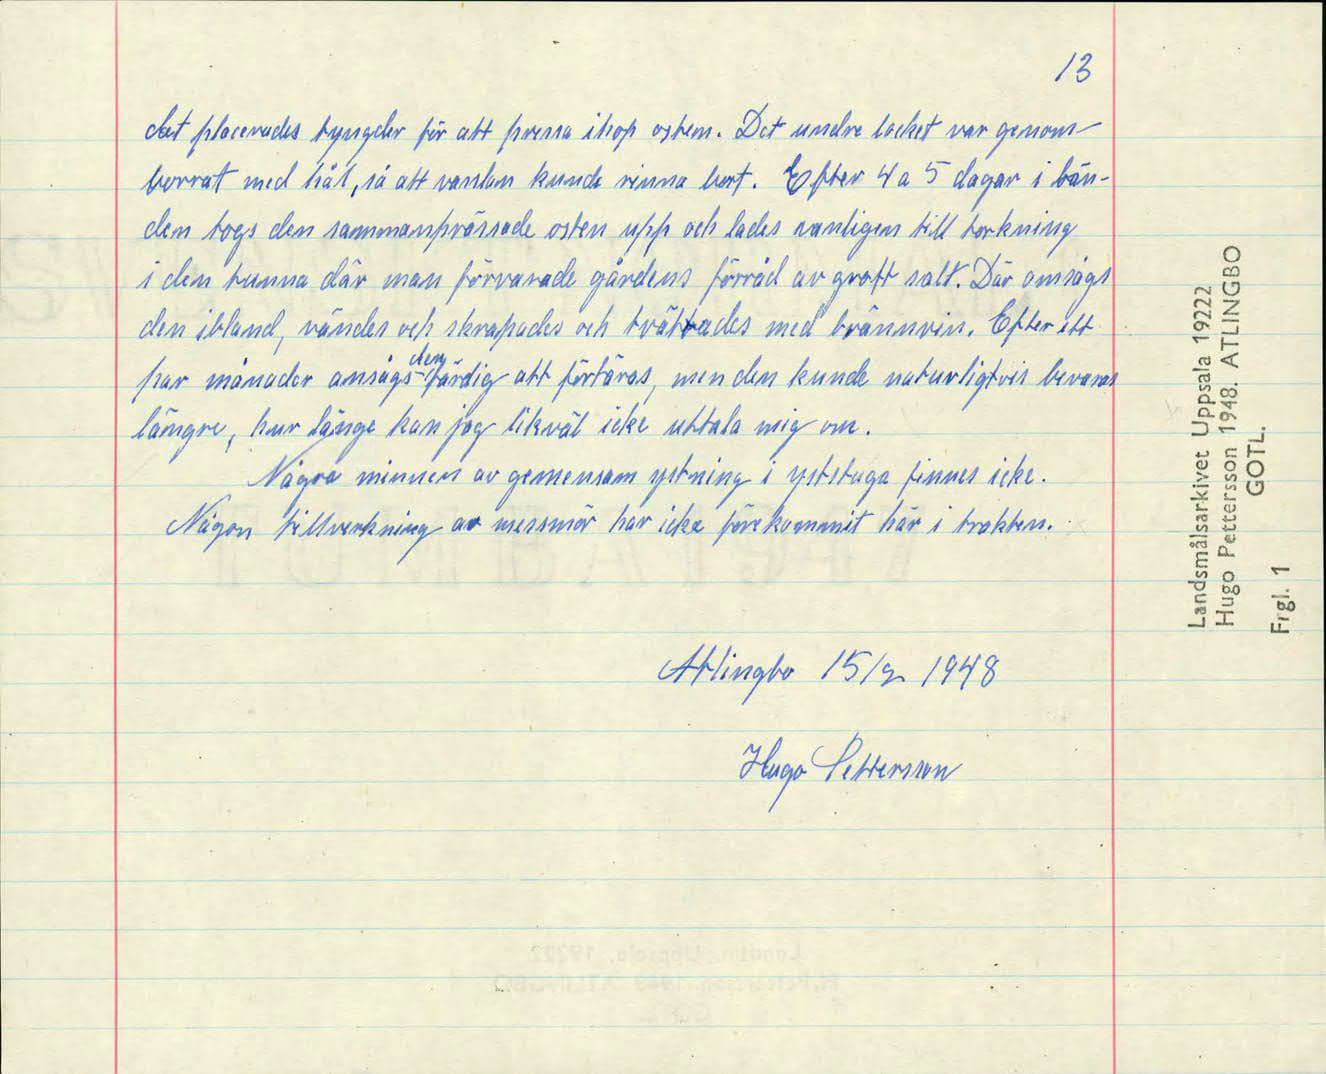 13
det placerades tyngder för att pressa ihop osten. Det undre locket var genom-
borrat med hål, så att vasslan kunde rinna bort. Efter 4 a 5 dagar i bån-
den togs den sammanprässade osten upp och lades vanligen till torkning
i den tunna där man förvarade gårdens förråd av groft salt. Där omsågs
den ibland, vändes och skrapades och tvättades med brännvin. Efter ett
par månader ansågs den färdig att förtäras, men den kunde naturligtvis bevaras
längre, hur länge kan jag likväl icke uttala mig om.
Några minnen av gemensam ystning i yststuga finnes icke.
Någon tillverkning av messmör har icke förekommit här i trakten.
Atlingbo 15/2 1948
Hugo Pettersson
Landsmålsarkivet Uppsala 19222
Hugo Pettersson 1948. ATLINGBO
GOTL.
Frgl. 1